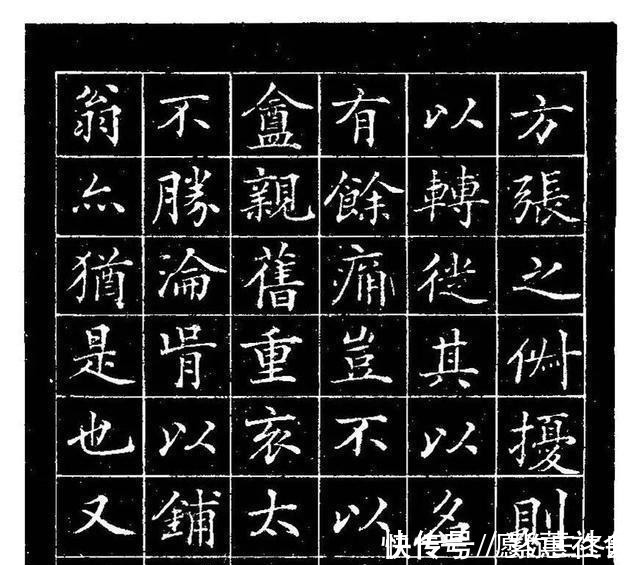 方張之俶擾則
以轉徙其以名
有餘痛豈不以
盦親舊重哀太
不勝淪胥以鋪
翁亦猶是也又
快传号//愿